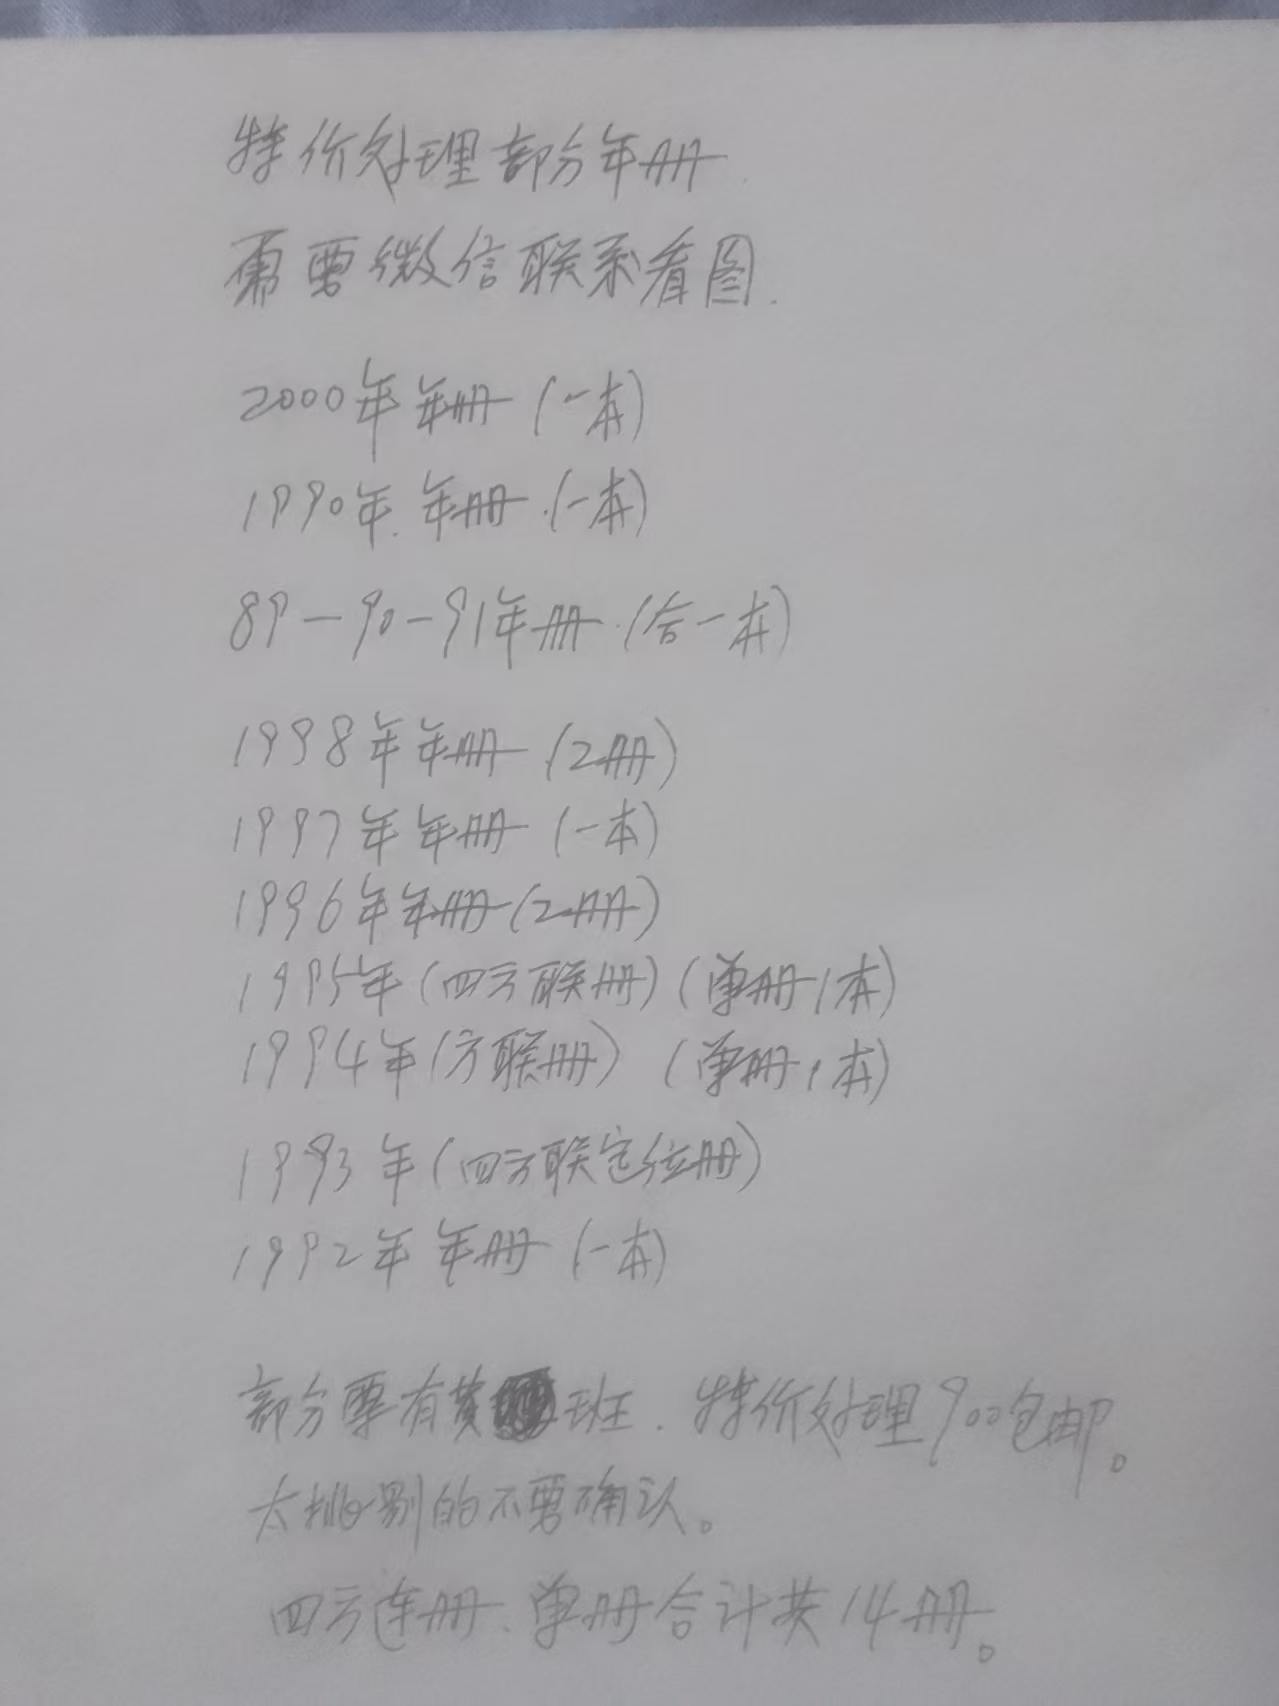 特价处理部分年册
需要微信联系看图.
2000年年册(一本)
1990年.年册.(一本)
89—90—91年册.(合一本)
1998年年册(2册)
1997年年册(一本)
1996年年册(2册)
1995年(四方联册)(单册1本)
1994年(方联册)(单册1本)
1993年(四方联定位册)
1992年年册(一本)
部分票有黄班.特价处理900包邮。
太挑剔的不要确认。
四方连册、单册合计共14册。